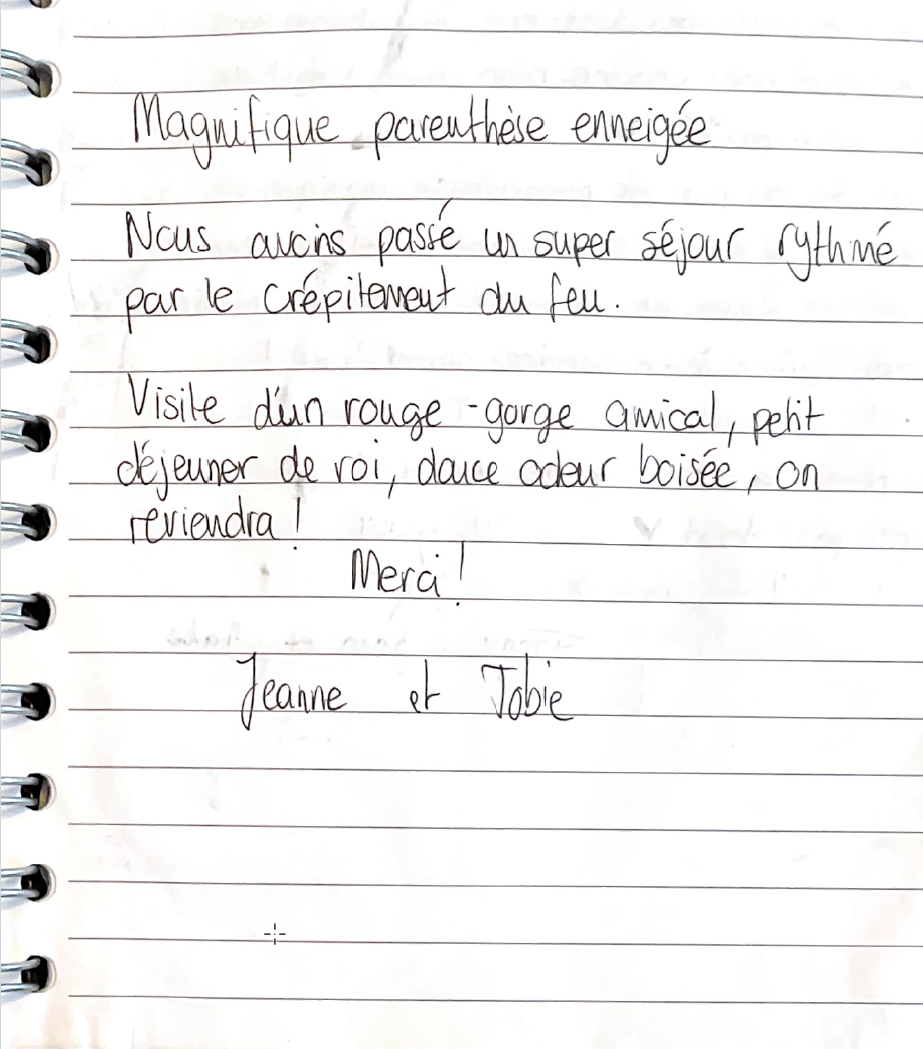 Magnifique parenthèse enneigée
Nous avons passé un super séjour rythmé
par le crépitement du feu.
Visite d'un rouge-gorge amical, petit
déjeuner de roi, douce odeur boisée, on
reviendra !
Merci !
Jeanne et Tobie